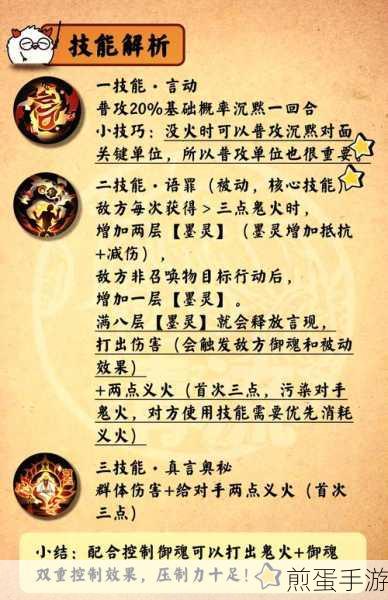 技能解析
一技能·言动
普攻20%基础概率沉默一回合
小技巧：没火时可以普攻沉默对面
关键单位，所以普攻单位也很重要
二技能·语罪（被动，核心技能）
敌方每次获得>三点鬼火时，
增加两层【墨灵】（墨灵增加抵抗
+减伤），
敌方非召唤物目标行动后，
增加一层【墨灵】。
满八层【墨灵】就会释放言现，
打出伤害（会触发敌方御魂和被动
效果）
+两点义火（首次三点，污染对手
鬼火，对方使用技能需要优先消耗
义火）
三技能·真言奥秘
群体伤害+给对手两点义火（首次
三点）
小结：配合控制御魂可以打出鬼火+御魂
双重控制效果，压制力十足！
煎蛋手游